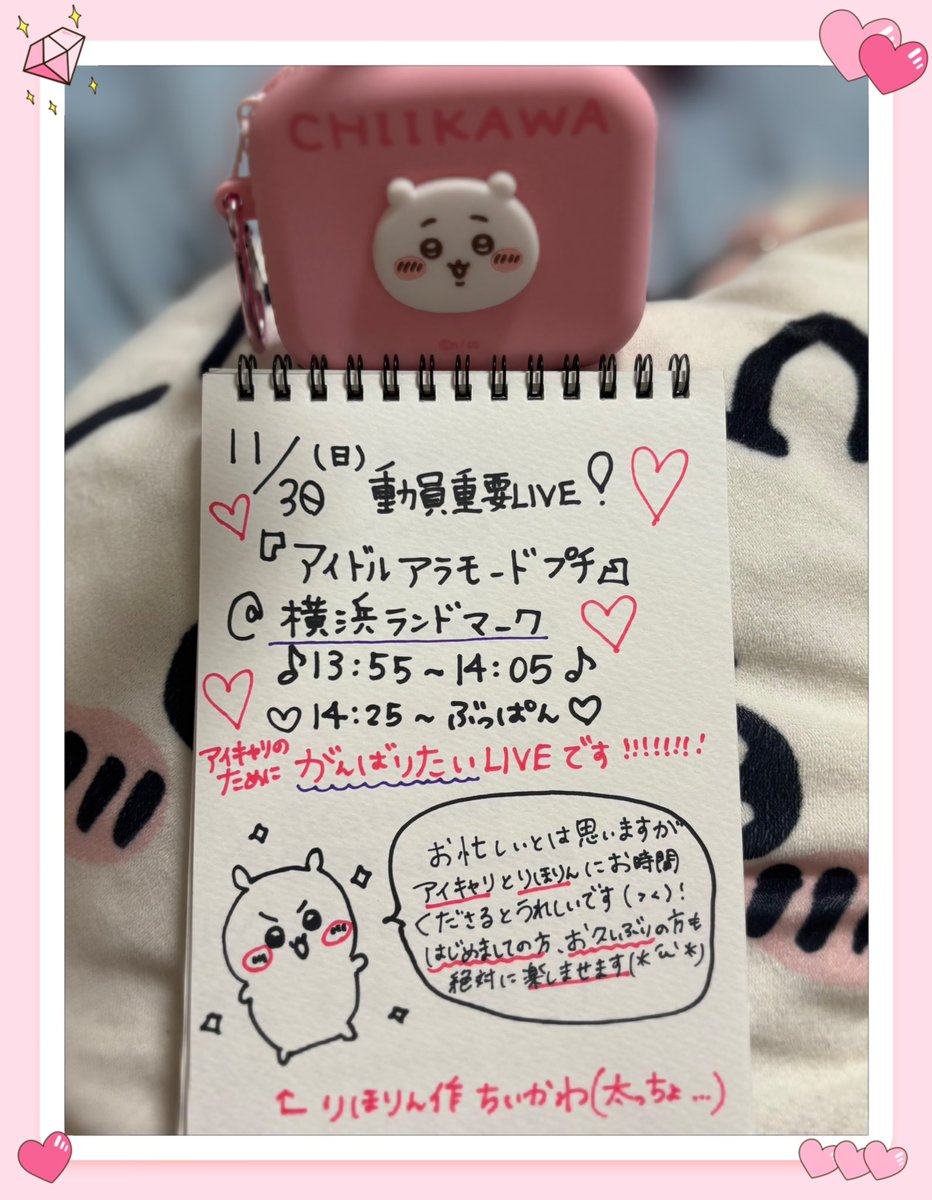 CHIIKAWA
11/30(日) 動員重要LIVE!
『アイドルアラモードプチ』
@横浜ランドマーク
♪13:55~14:05♪
♡14:25~ぶっぱん♡
アイキャリの
ために がんばりたいLIVEです!!!!!!!!
お忙しいとは思いますが
アイキャリとりほりんにお時間
くださるとうれしいです(><)!
はじめましての方、お久しぶりの方も
絶対に楽しませます(*ˊᵕˋ*)
← りほりん作 ちいかわ(太っちょ…)